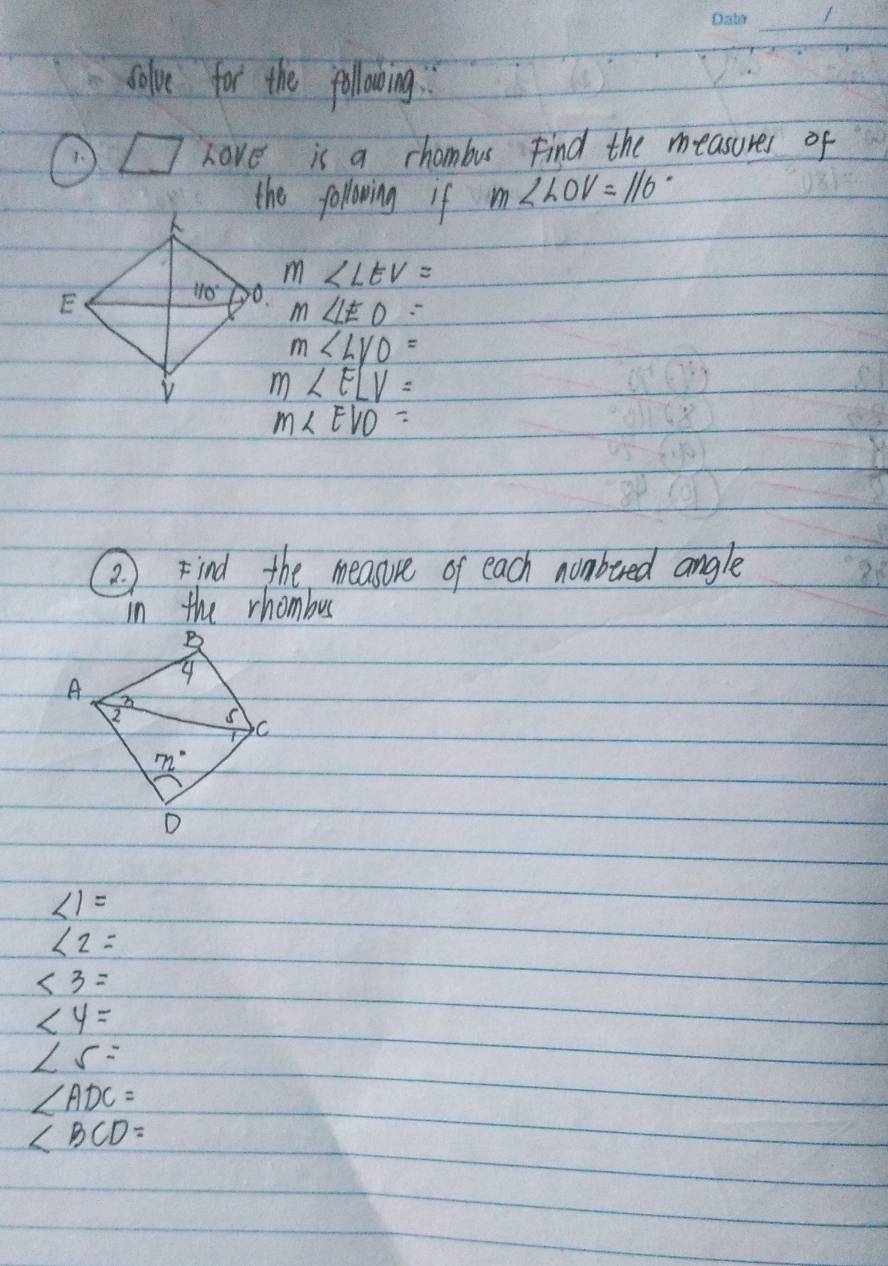 Date /
Solve for the following:
1. LOVE is a rhombus Find the measures of
the following if m<LOV = 110°
L
E 110° O.
V
m <LEV =
m <LEO =
m <LVO =
m < ELV =
m< EVO =
2. Find the measure of each numbered angle
in the rhombus
B
4
A 3
2 5
1 C
72°
D
<1 =
<2 =
<3 =
<4 =
<5 =
<ADC =
<BCD =